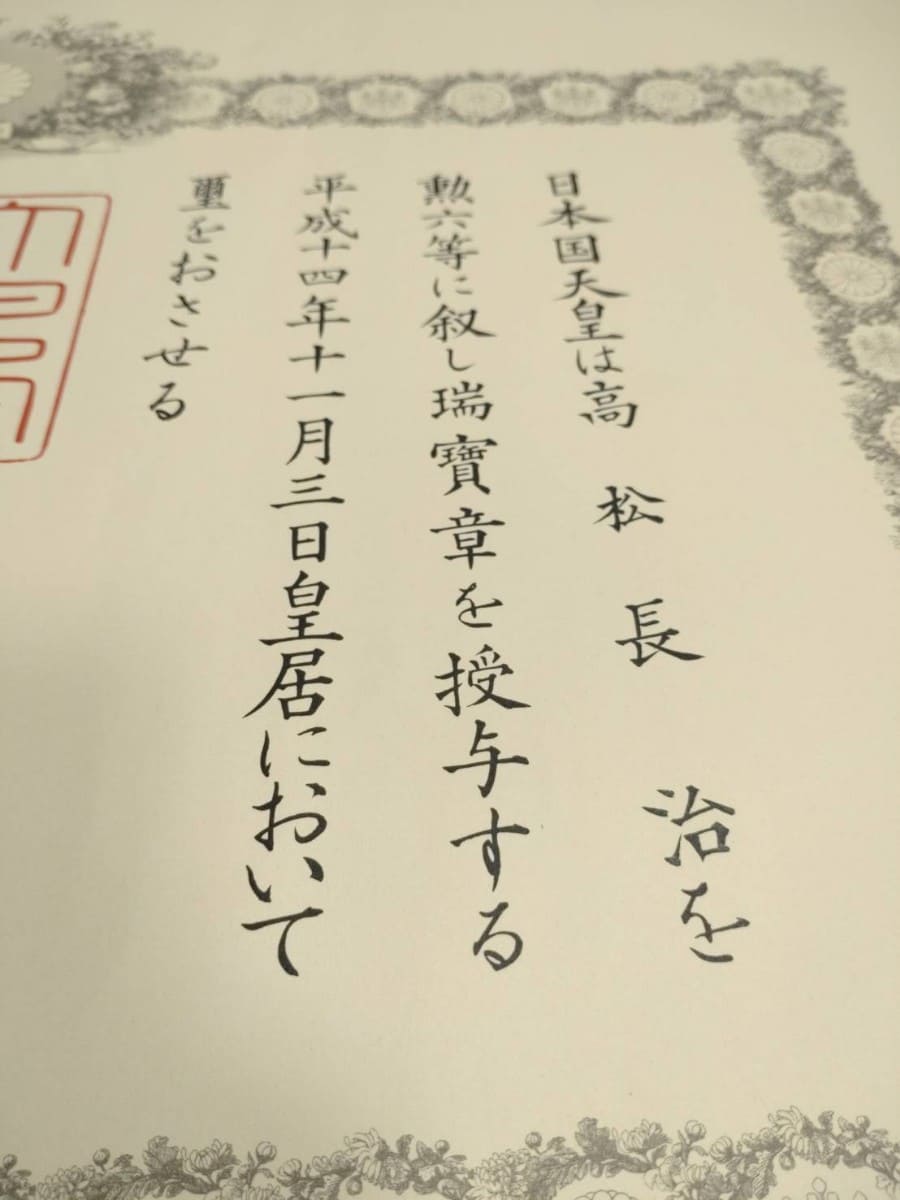 日本国天皇は高松長治を
勲六等に叙し瑞寶章を授与する
平成十四年十一月三日皇居において
璽をおさせる